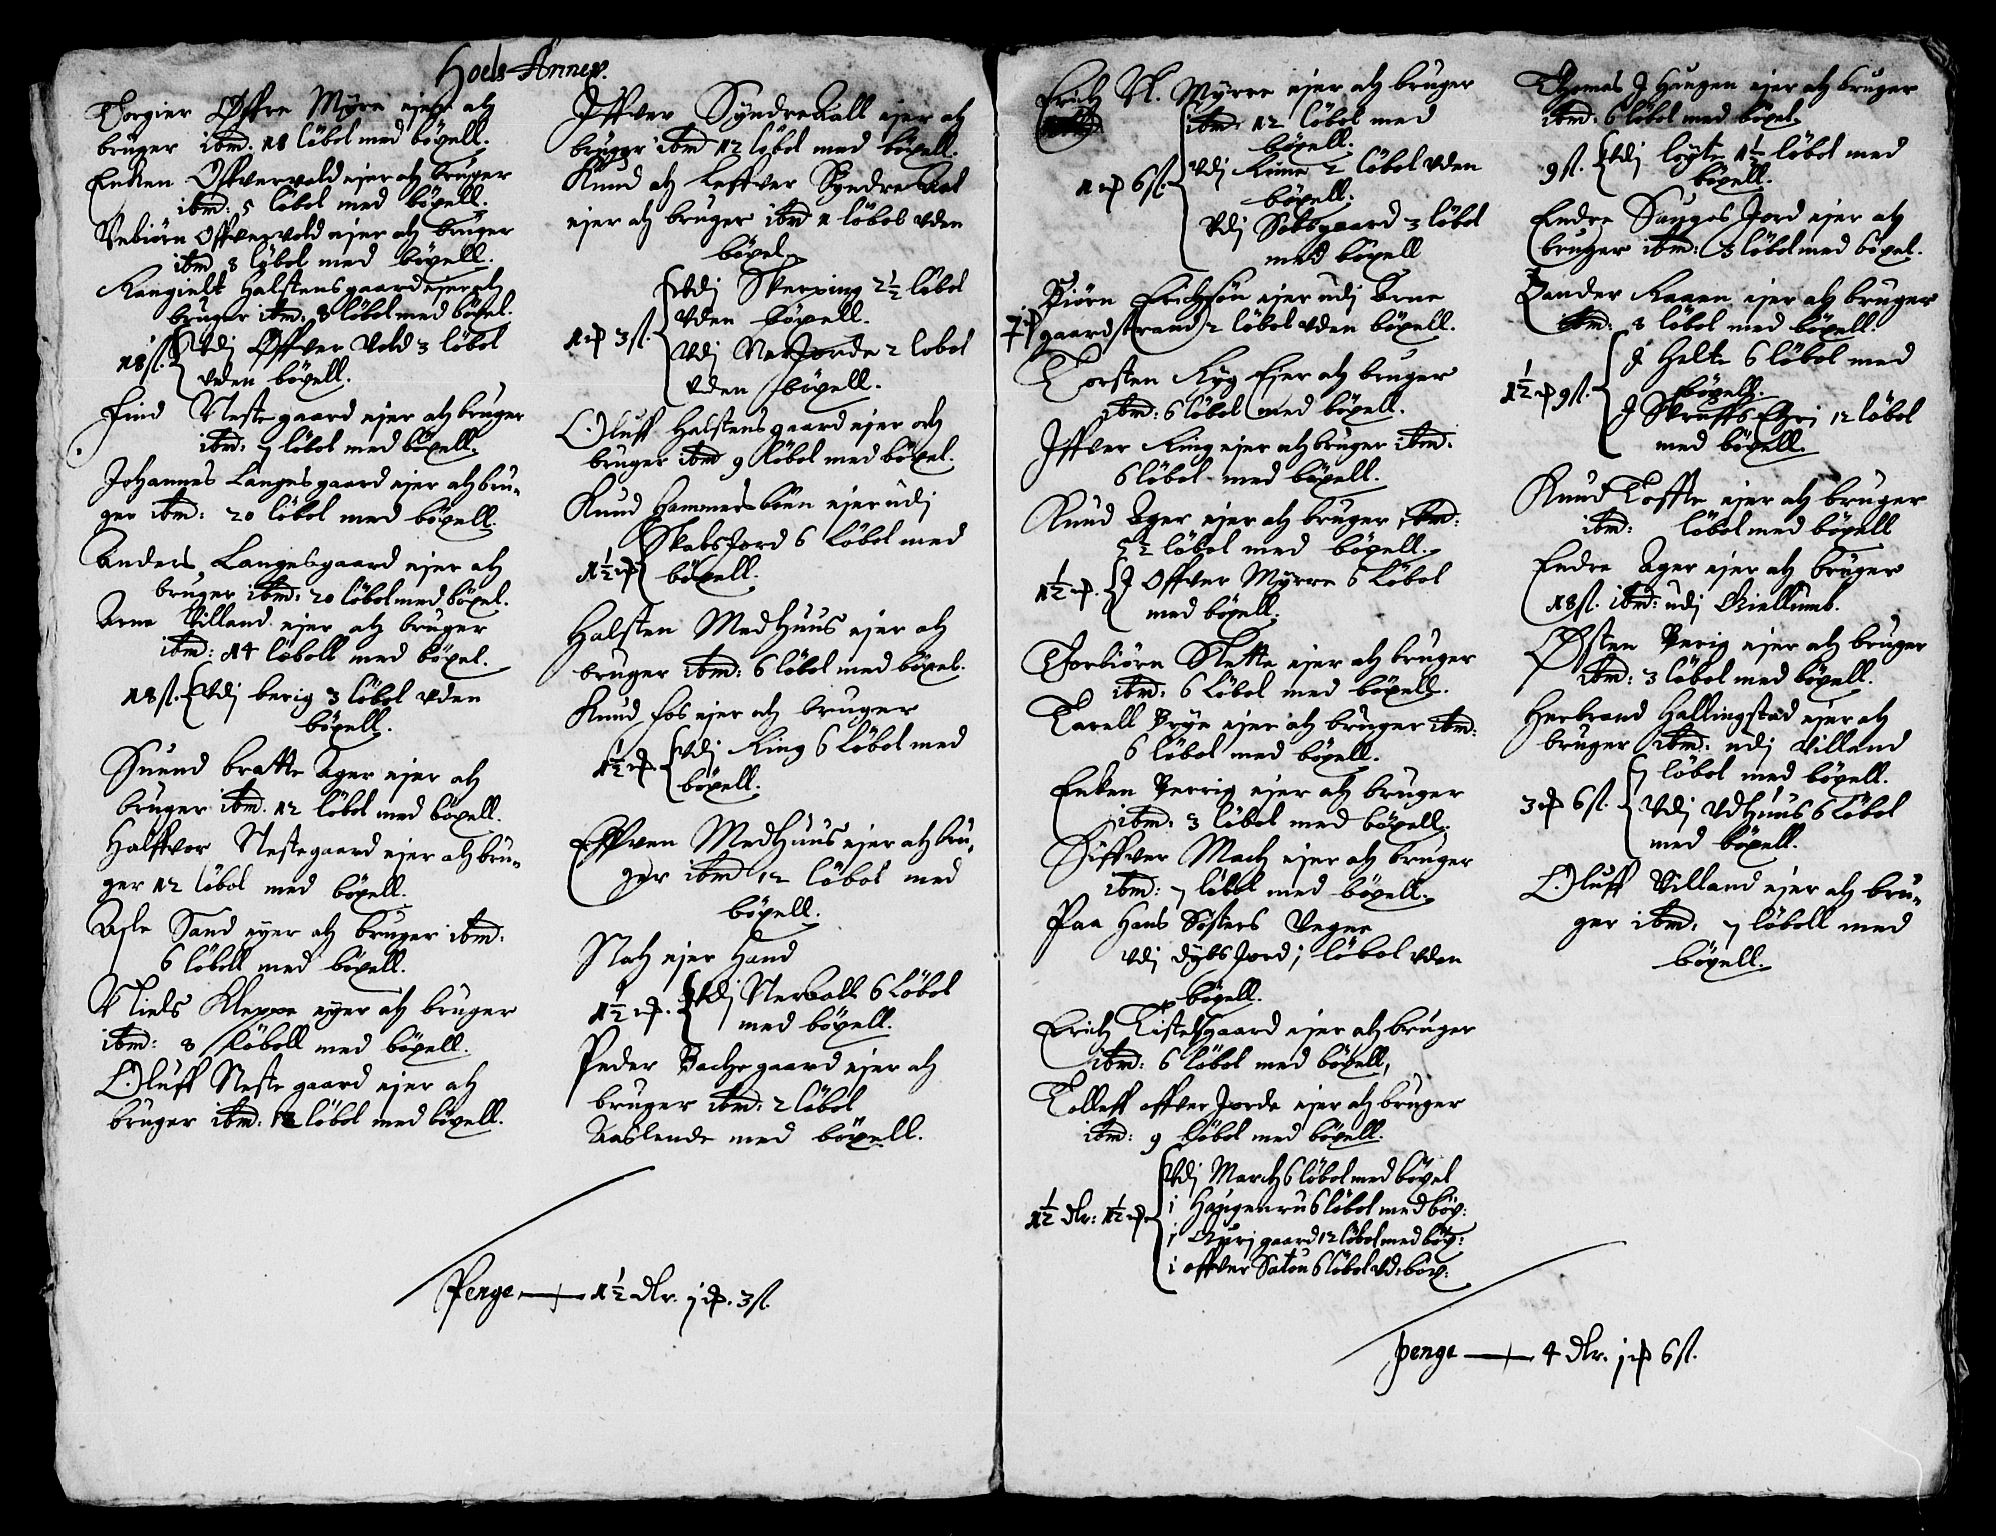 Hoels Annex.
Torgier Øffre Myre ejer och
bruger ibm: 18 löbol med böxell.
Enken Offvervold ejer och bruger
ibm: 5 löbol med böxell.
Vebiörn Offvervold ejer och bruger
ibm 8 löbol med böxell.
Rangield Halstensgaard ejer och
bruger ibm: 8 löbol med böxel.
18 sl. Vdj Offver Vold 3 löbol
vden böxell.
Find Nestegaard ejer och bruger
ibm: 7 löbol med böxell.
Johannes Langesgaard ejer och bru-
ger ibm: 20 löbol med böxell.
Anders Langesgaard ejer och
bruger ibm: 20 löbol med böxel.
Arne Villand ejer och bruger
ibm: 14 löboll med böxel.
18 sl. Vdj berig 3 löbol vden
böxell.
Suend bratte Ager ejer och
bruger ibm. 12 löbol med böxell.
Halffvor Nestegaard ejer och bru-
ger 12 löbol med böxell.
Asle Sand eyer och bruger ibm:
6 löboll med böxell.
Niels Kleppe eyer och bruger
ibm: 8 löboll med böxell.
Oluff Nestegaard ejer och
bruger ibm: 12 löbol med böxell.
Iffver Syndre Aall ejer och
bruger ibm 12 löbol med böxell.
Knud och Leffver Syndre Aal
ejer och bruger ibm 1 löbol vden
böxel
Vdj Skerping 2½ löbol
vden böxell.
1 ₰ 3 sl. Vdj Nerjorde 2 lobol
vden böxell.
Oluff Halstensgaard ejer och
bruger ibm 9 löbol med böxel.
Knud Hammersböen ejer udj
Skabsjord 6 Löbol med
1½ ₰ böxell.
Halsten Medhuus ejer och
bruger ibm: 6 löbol med böxel.
Knud Fos ejer och bruger
1½ ₰. Vdj Ring 6 Löbol med
böxell.
Effven Medhuus ejer och bru-
ger ibm 12 löbol med
böxell.
Noch ejer Hand
1½ ₰. Vdj Neraall 6 Löbol
med böxell.
Peder Bachegaard ejer och
bruger ibm: 2 löbol
Aaslende med böxell.
Penge — 1½ dlr. j ₰. 3 sl.
Erich N. Myrre ejer och bruger
ibm: 12 löbol med
böxell.
1 ₰ 6 sl. Vdj Rime 2 löbol vden
böxell.
Vdj Sotsgaard 3 löbol
med böxell
Biörn Erichsön ejer udj Arne
gaardstrand 2 löbol vden böxell.
Torsten Ryg Ejer och bruger
ibm: 6 löbol med böxell.
Iffver Ring ejer och bruger ibm:
6 löbol med böxell.
Knud Ager ejer och bruger ibm:
löbol med böxell.
1½ ₰. J Offver Myrre 6 Löbol
med böxell.
Torbiörn Slette ejer och bruger
ibm: 6 Löbol med böxell.
Tarell Brye ejer och bruger ibm:
6 löbol med böxell.
Enken Berrig ejer och bruger
ibm: 3 löbol med böxell.
Siffver Mach ejer och bruger
ibm: 7 löbol med böxell.
Paa Hans Sösters Vegne
Vdj dybs Jord j löbol vden
böxell.
Erich Tistelsgaard ejer och bruger
ibm: 6 löbol med böxell,
Tolleff offver Jorde ejer och bruger
ibm: 9 Löbol med böxell.
Vdj March 6 löbol med böxel
i Haugenru 6 löbol med böx:
1½ dlr: 1½ ₰ i Gurigaard 12 löbol med böx:
i offver Saton 6 löbol vd: böx:
Penge — 4 dlr. j ₰ 6 sl.
Thomas J Haugen ejer och bruger
ibm: 6 löbol med böxel.
9 sl. Vdj loyte 1½ löbol med
böxell.
Endre Sauges Jord ejer och
bruger ibm: 3 löbol med böxel.
Sander Raaen ejer och bruger
ibm: 8 löbol med böxell.
J Helte 6 löbol med
1½ ₰ 9 sl. böxell.
J Skruffs Egri 12 löbol
med böxell.
Knud Toffte ejer och bruger
ibm: löbol med böxell
Endre Ager ejer och bruger
18 sl. ibm: udj Giellumb.
Østen Berig ejer och bruger
ibm: 3 löbol med böxell.
Herbrand Hallingstad ejer och
bruger ibm: udj Villand
7 löbol med böxell.
3 ₰ 6 sl. Vdj Vdhuus 6 Löbol
med böxell.
Oluff Villand ejer och bru-
ger ibm. 7 löboll med
böxell.